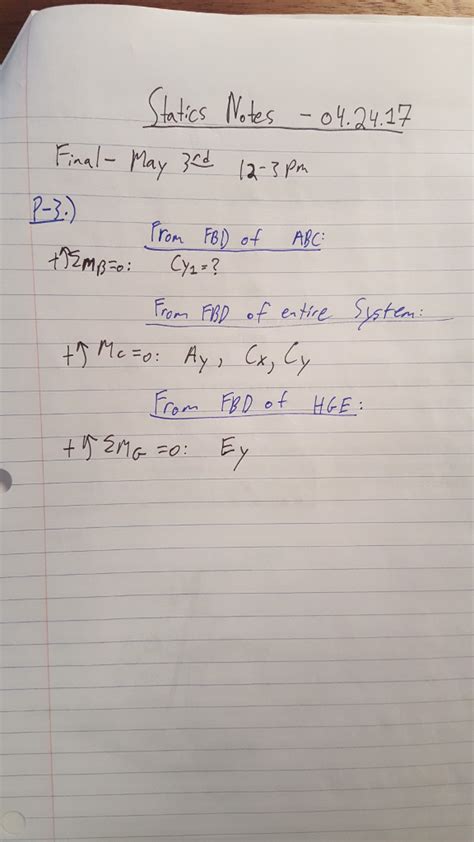 Statics Notes - 04.24.17
Final - May 3rd 12-3 pm
P-3.)
From FBD of ABC:
+↺ΣMB=0: Cy1=?
From FBD of entire System:
+↺ Mc=0: Ay, Cx, Cy
From FBD of HGE:
+↺ΣMG=0: Ey